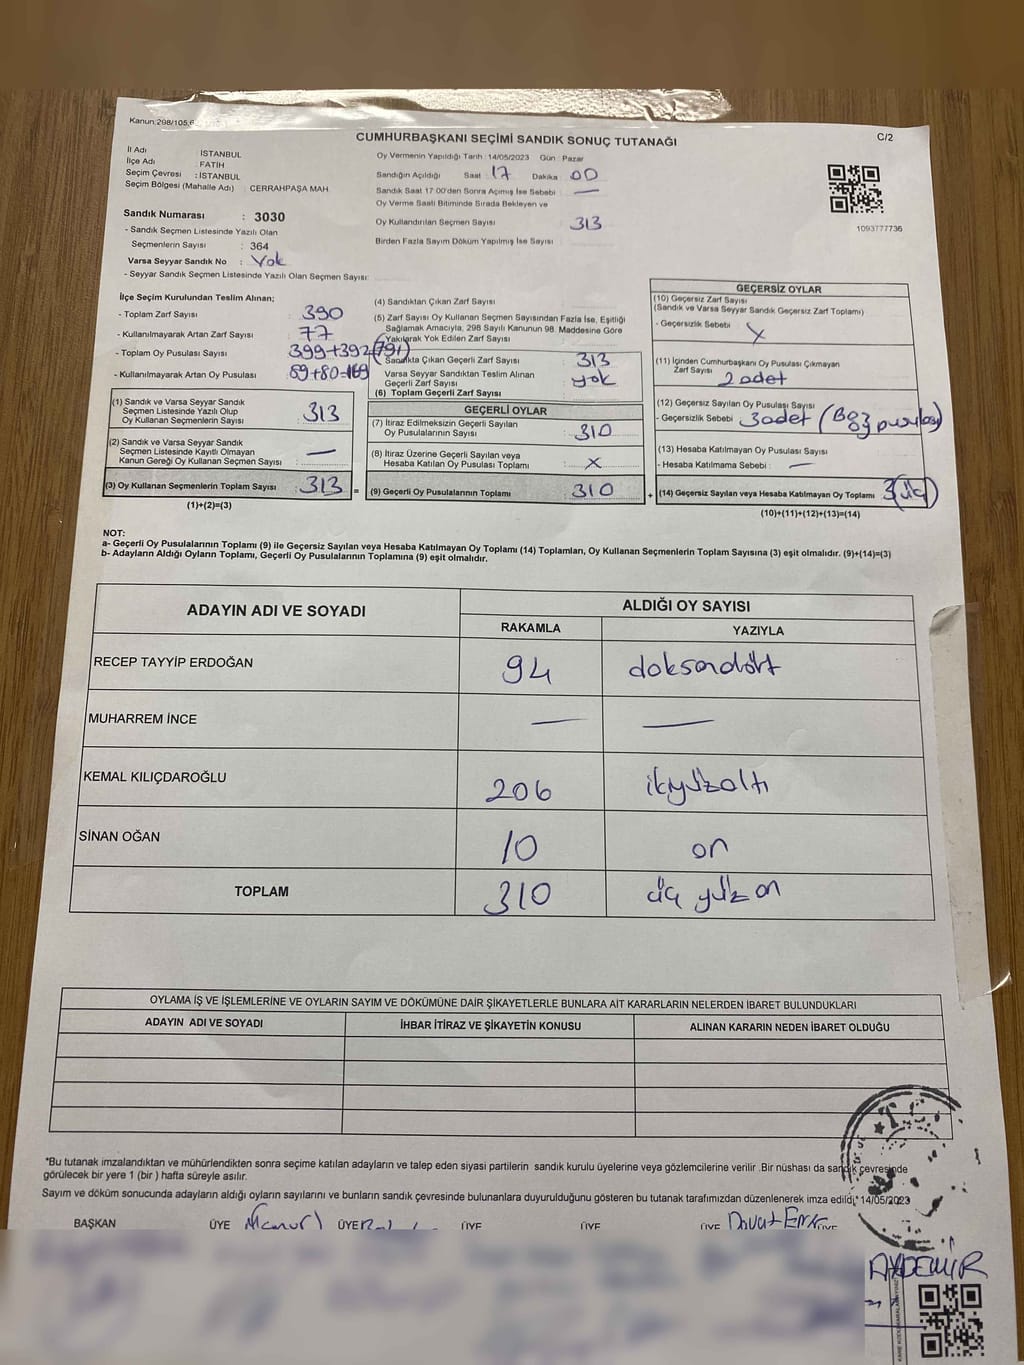 Kanun:298/105,6
C/2
CUMHURBAŞKANI SEÇİMİ SANDIK SONUÇ TUTANAĞI
İl Adı : İSTANBUL
İlçe Adı : FATİH
Seçim Çevresi : İSTANBUL
Seçim Bölgesi (Mahalle Adı) : CERRAHPAŞA MAH.
Sandık Numarası : 3030
- Sandık Seçmen Listesinde Yazılı Olan
Seçmenlerin Sayısı : 364
Varsa Seyyar Sandık No : Yok
- Seyyar Sandık Seçmen Listesinde Yazılı Olan Seçmen Sayısı:
Oy Vermenin Yapıldığı Tarih :14/05/2023 Gün : Pazar
Sandığın Açıldığı Saat : 17 Dakika : 00
Sandık Saat 17:00'den Sonra Açımış İse Sebebi : —
Oy Verme Saati Bitiminde Sırada Bekleyen ve
Oy Kullandırılan Seçmen Sayısı : 313
Birden Fazla Sayım Döküm Yapılmış İse Sayısı :
1093777736
İlçe Seçim Kurulundan Teslim Alınan;
- Toplam Zarf Sayısı : 390
- Kullanılmayarak Artan Zarf Sayısı : 77
- Toplam Oy Pusulası Sayısı : 399+392(791)
- Kullanılmayarak Artan Oy Pusulası : 89+80=169
(1) Sandık ve Varsa Seyyar Sandık
Seçmen Listesinde Yazılı Olup
Oy Kullanan Seçmenlerin Sayısı : 313
(2) Sandık ve Varsa Seyyar Sandık
Seçmen Listesinde Kayıtlı Olmayan
Kanun Gereği Oy Kullanan Seçmen Sayısı : —
(3) Oy Kullanan Seçmenlerin Toplam Sayısı : 313 =
(1)+(2)=(3)
(4) Sandıktan Çıkan Zarf Sayısı :
(5) Zarf Sayısı Oy Kullanan Seçmen Sayısından Fazla İse, Eşitliği
Sağlamak Amacıyla, 298 Sayılı Kanunun 98. Maddesine Göre
Yakılarak Yok Edilen Zarf Sayısı :
Sandıkta Çıkan Geçerli Zarf Sayısı : 313
Varsa Seyyar Sandıktan Teslim Alınan
Geçerli Zarf Sayısı : yok
(6) Toplam Geçerli Zarf Sayısı :
GEÇERLİ OYLAR
(7) İtiraz Edilmeksizin Geçerli Sayılan
Oy Pusulalarının Sayısı : 310
(8) İtiraz Üzerine Geçerli Sayılan veya
Hesaba Katılan Oy Pusulası Toplamı : X
(9) Geçerli Oy Pusulalarının Toplamı : 310 +
GEÇERSİZ OYLAR
(10) Geçersiz Zarf Sayısı
(Sandık ve Varsa Seyyar Sandık Geçersiz Zarf Toplamı)
- Geçersizlik Sebebi : X
(11) İçinden Cumhurbaşkanı Oy Pusulası Çıkmayan
Zarf Sayısı : 2 adet
(12) Geçersiz Sayılan Oy Pusulası Sayısı
- Geçersizlik Sebebi : 3 adet (Boş pusulası)
(13) Hesaba Katılmayan Oy Pusulası Sayısı
- Hesaba Katılmama Sebebi : —
(14) Geçersiz Sayılan veya Hesaba Katılmayan Oy Toplamı : 3(üç)
(10)+(11)+(12)+(13)=(14)
NOT:
a- Geçerli Oy Pusulalarının Toplamı (9) ile Geçersiz Sayılan veya Hesaba Katılmayan Oy Toplamı (14) Toplamları, Oy Kullanan Seçmenlerin Toplam Sayısına (3) eşit olmalıdır. (9)+(14)=(3)
b- Adayların Aldığı Oyların Toplamı, Geçerli Oy Pusulalarının Toplamına (9) eşit olmalıdır.
ADAYIN ADI VE SOYADI ALDIĞI OY SAYISI
RAKAMLA YAZIYLA
RECEP TAYYİP ERDOĞAN 94 doksandört
MUHARREM İNCE — —
KEMAL KILIÇDAROĞLU 206 ikiyüzaltı
SİNAN OĞAN 10 on
TOPLAM 310 üç yüz on
OYLAMA İŞ VE İŞLEMLERİNE VE OYLARIN SAYIM VE DÖKÜMÜNE DAİR ŞİKAYETLERLE BUNLARA AİT KARARLARIN NELERDEN İBARET BULUNDUKLARI
ADAYIN ADI VE SOYADI İHBAR İTİRAZ VE ŞİKAYETİN KONUSU ALINAN KARARIN NEDEN İBARET OLDUĞU
*Bu tutanak imzalandıktan ve mühürlendikten sonra seçime katılan adayların ve talep eden siyasi partilerin sandık kurulu üyelerine veya gözlemcilerine verilir .Bir nüshası da sandık çevresinde
görülecek bir yere 1 (bir ) hafta süreyle asılır.
Sayım ve döküm sonucunda adayların aldığı oyların sayılarını ve bunların sandık çevresinde bulunanlara duyurulduğunu gösteren bu tutanak tarafımızdan düzenlenerek imza edildi.* 14/05/2023
T.C.
BAŞKAN ÜYE ÜYE ÜYE ÜYE ÜYE ÜYE
AYDEMİR